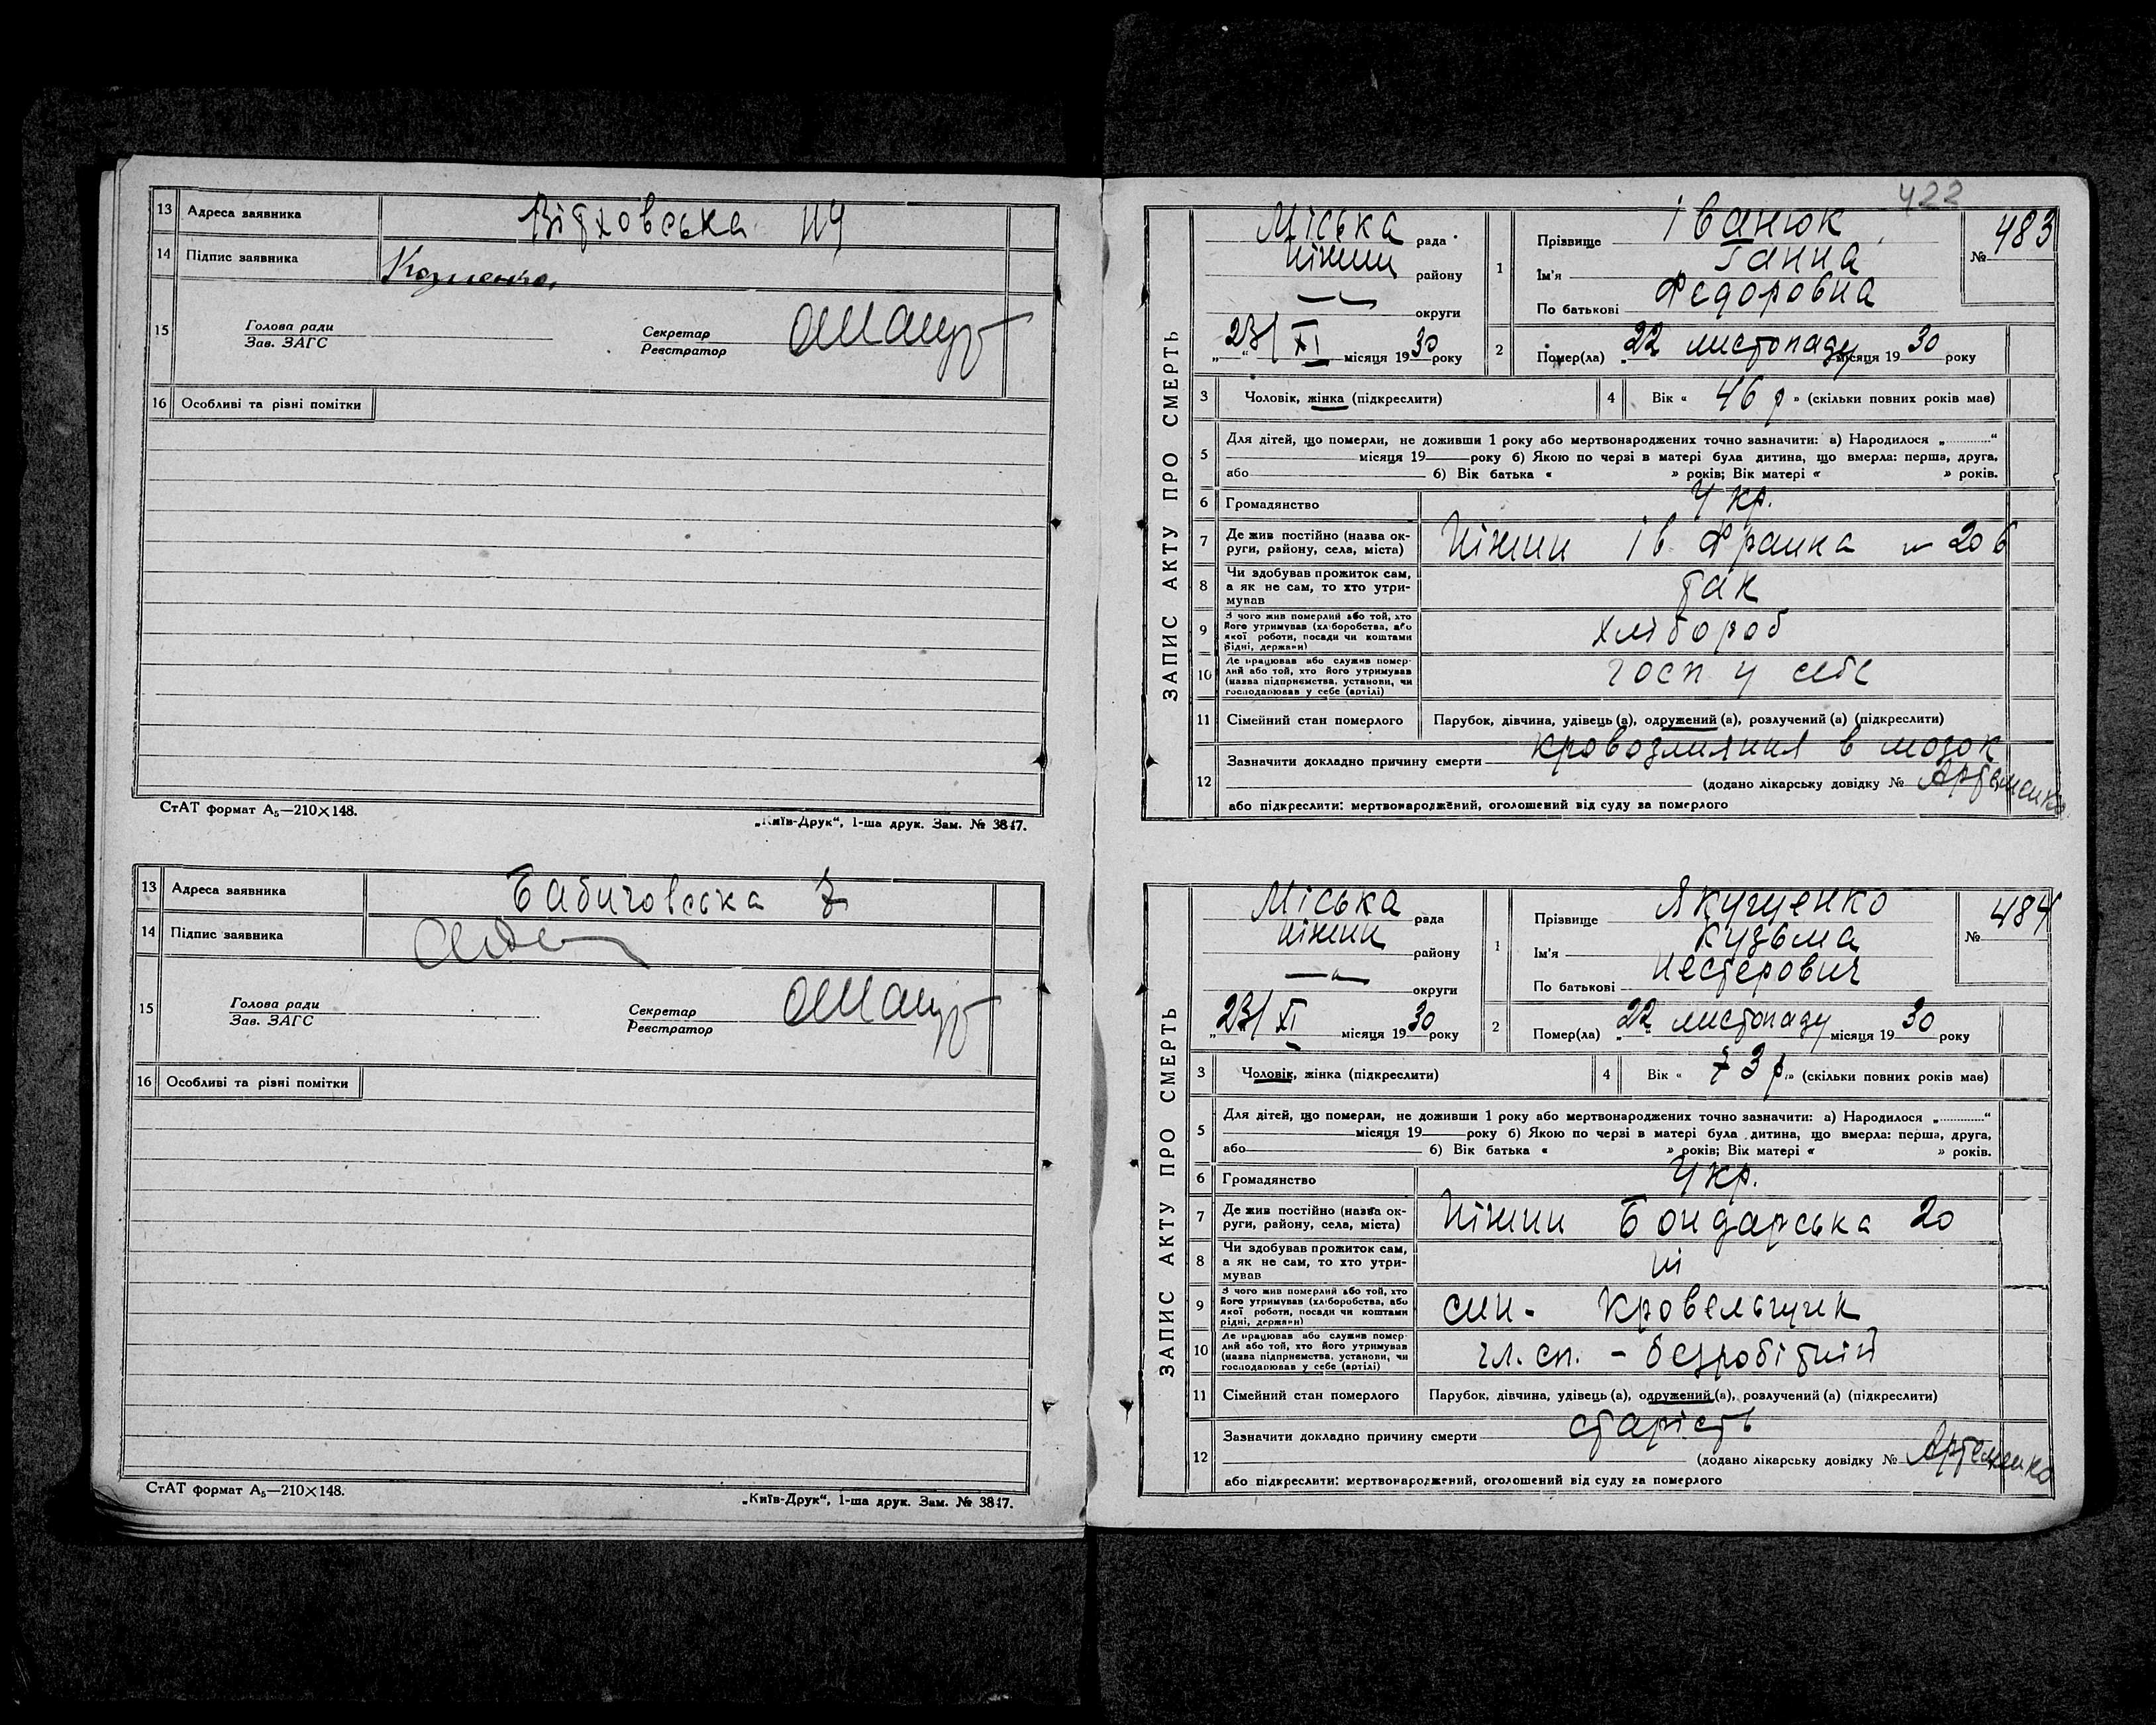 13 Адреса заявника
14 Підпис заявника
15 Голова ради
Зав. ЗАГС
Секретар
Реєстратор
16 Особливі та різні помітки
СтАТ формат А₅—210×148.
„Київ-Друк“, 1-ша друк. Зам. № 3847.
13 Адреса заявника Бабичовська 7
14 Підпис заявника
15 Голова ради
Зав. ЗАГС
Секретар
Реєстратор
16 Особливі та різні помітки
СтАТ формат А₅—210×148.
„Київ-Друк“, 1-ша друк. Зам. № 3847.
422
ЗАПИС АКТУ ПРО СМЕРТЬ
Міська рада
Ніжин району
округи
„23/XI місяця 1930 року
1 Прізвище Іванюк
Ім'я Ганна
По батькові Федоровна
№ 483
2 Помер(ла) 22 листопаду місяця 1930 року
3 Чоловік, жінка (підкреслити)
4 Вік « 46 р » (скільки повних років має)
5 Для дітей, що померли, не доживши 1 року або мертвонароджених точно зазначити: а) Народилося „............“
місяця 19 року б) Якою по черзі в матері була дитина, що вмерла: перша, друга,
або б) Вік батька « » років; Вік матері « » років.
6 Громадянство Укр.
7 Де жив постійно (назва ок-
руги, району, села, міста) Ніжин Ів Франка 206
8 Чи здобував прожиток сам,
а як не сам, то хто утри-
мував так
9 З чого жив померлий або той, хто
його утримував (хліборобства, або
якої роботи, посади чи коштами
рідні, держави) хлібороб
10 Де працював або служив помер-
лий або той, хто його утримував
(назва підприємства, установи, чи
господарював у себе (артілі) госп у себе
11 Сімейний стан померлого Парубок, дівчина, удівець (а), одружений (а), розлучений (а) (підкреслити)
12 Зазначити докладно причину смерти кровозлияния в мозок
(додано лікарську довідку № Артеменко
або підкреслити: мертвонароджений, оголошений від суду за померлого
ЗАПИС АКТУ ПРО СМЕРТЬ
Міська рада
Ніжин району
округи
„23/XI місяця 1930 року
1 Прізвище Якущенко
Ім'я Кузьма
По батькові Нестерович
№ 484
2 Помер(ла) 22 листопаду місяця 1930 року
3 Чоловік, жінка (підкреслити)
4 Вік « 73 р.» (скільки повних років має)
5 Для дітей, що померли, не доживши 1 року або мертвонароджених точно зазначити: а) Народилося „............“
місяця 19 року б) Якою по черзі в матері була дитина, що вмерла: перша, друга,
або б) Вік батька « » років; Вік матері « » років.
6 Громадянство Укр.
7 Де жив постійно (назва ок-
руги, району, села, міста) Ніжин Бондарська 20
8 Чи здобував прожиток сам,
а як не сам, то хто утри-
мував ні
9 З чого жив померлий або той, хто
його утримував (хліборобства, або
якої роботи, посади чи коштами
рідні, держави) син - кровельщик
10 Де працював або служив помер-
лий або той, хто його утримував
(назва підприємства, установи, чи
господарював у себе (артілі) чл. сп. - безробітний
11 Сімейний стан померлого Парубок, дівчина, удівець (а), одружений (а), розлучений (а) (підкреслити)
12 Зазначити докладно причину смерти старість
(додано лікарську довідку № Артеменко
або підкреслити: мертвонароджений, оголошений від суду за померлого